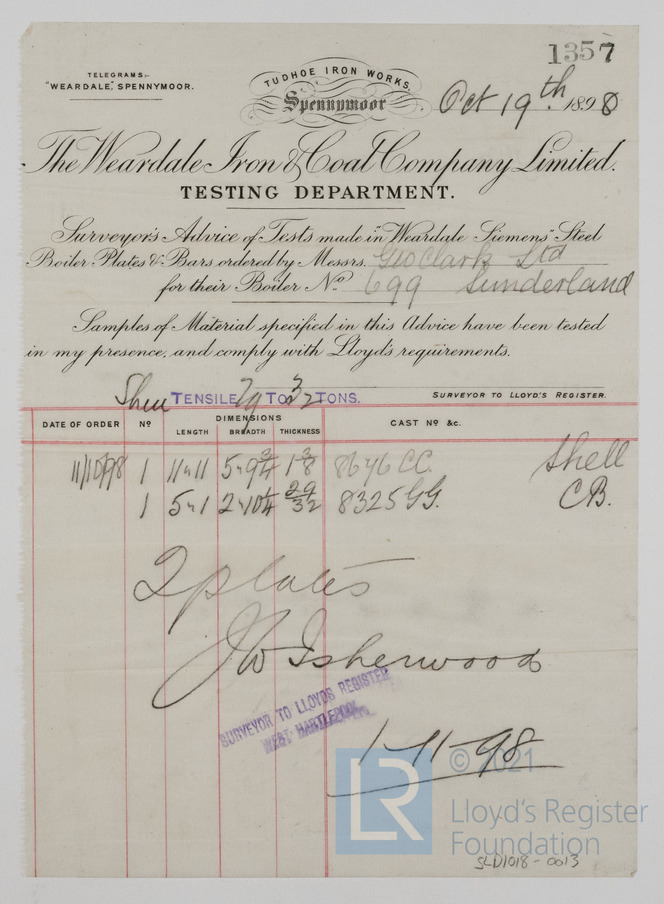 1357
TELEGRAMS:-
"WEARDALE," SPENNYMOOR.
TUDHOE IRON WORKS,
Spennymoor
Oct 19th 1898
The Weardale Iron & Coal Company Limited.
TESTING DEPARTMENT.
Surveyor's Advice of Tests made in "Weardale Siemens" Steel
Boiler Plates & Bars ordered by Messrs. Geo Clark Ltd
for their Boiler No. 699 Sunderland
Samples of Material specified in this Advice have been tested
in my presence, and comply with Lloyd's requirements.
SURVEYOR TO LLOYD'S REGISTER.
TENSILE 29 TO 32 TONS.
DATE OF ORDER No DIMENSIONS CAST No &c.
LENGTH BREADTH THICKNESS
11/10/98 1 11"11 5"9 3/4 1 3/8 8646 CC. Shell
1 5"1 2"10 1/4 29/32 8325 GG. CB.
2 plates
JW Isherwood
SURVEYOR TO LLOYDS REGISTER
WEST HARTLEPOOL
1-11-98
© 2021
LR
Lloyd's Register
Foundation
SLD1018-0013